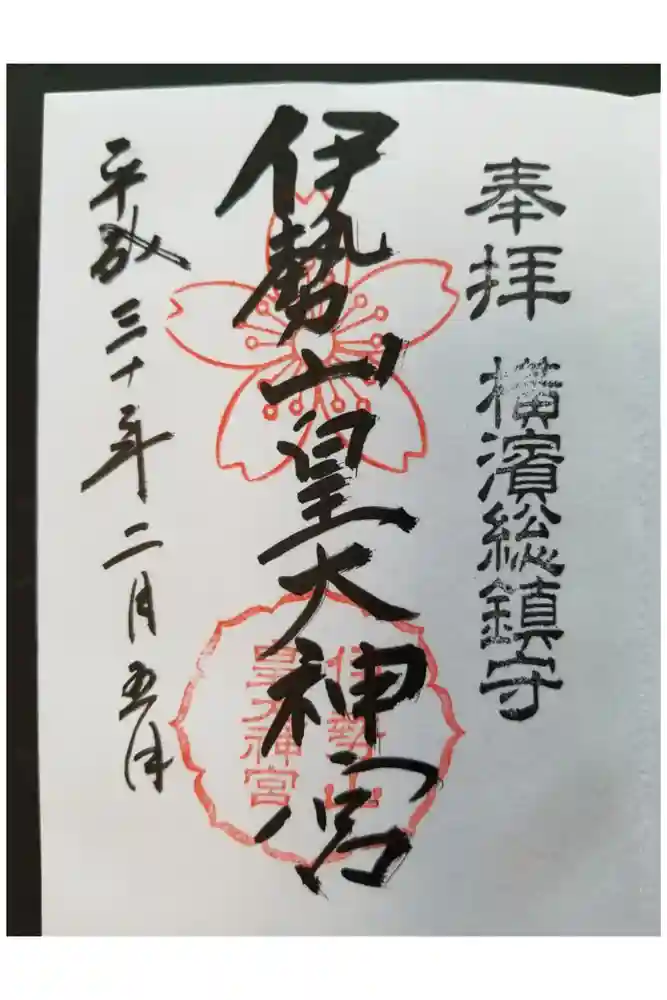 奉拝
横濱総鎮守
伊勢山皇大神宮
伊勢山
皇大神宮
平成三十年二月五日